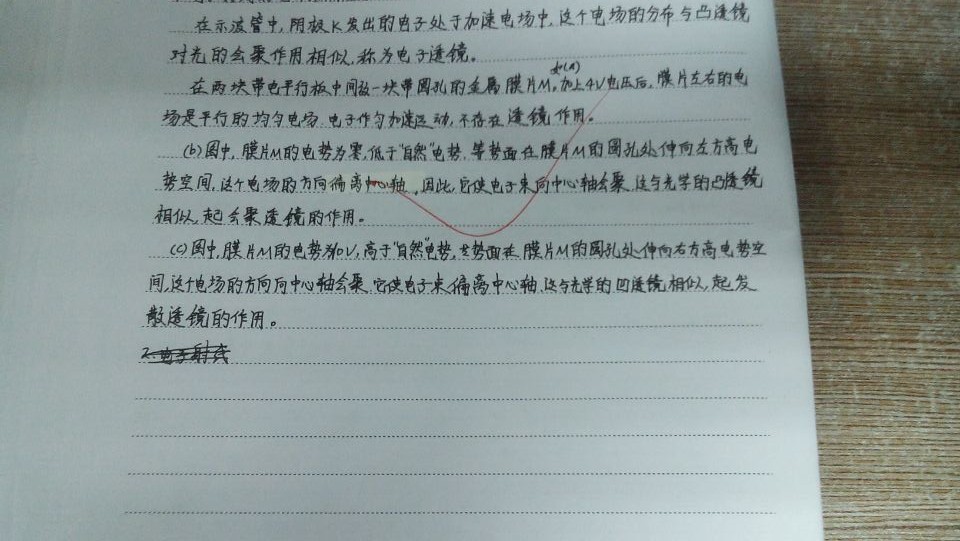 在示波管中,阴极K发出的电子处于加速电场中,这个电场的分布与凸透镜
对光的会聚作用相似,称为电子透镜。
如(a)
在两块带电平行板中间放一块带圆孔的金属膜片M。加上4V电压后,膜片左右的电
场是平行的均匀电场,电子作匀加速运动,不存在透镜作用。
(b)图中,膜片M的电势为零,低于"自然"电势,等势面在膜片M的圆孔处伸向左方高电
势空间,这个电场的方向偏离中心轴,因此,它使电子束向中心轴会聚,这与光学的凸透镜
相似,起会聚透镜的作用。
(c)图中,膜片M的电势为10V,高于"自然"电势,等势面在膜片M的圆孔处伸向右方高电势空
间,这个电场的方向向中心轴会聚,它使电子束偏离中心轴,这与光学的凹透镜相似,起发
散透镜的作用。
2.电子射线